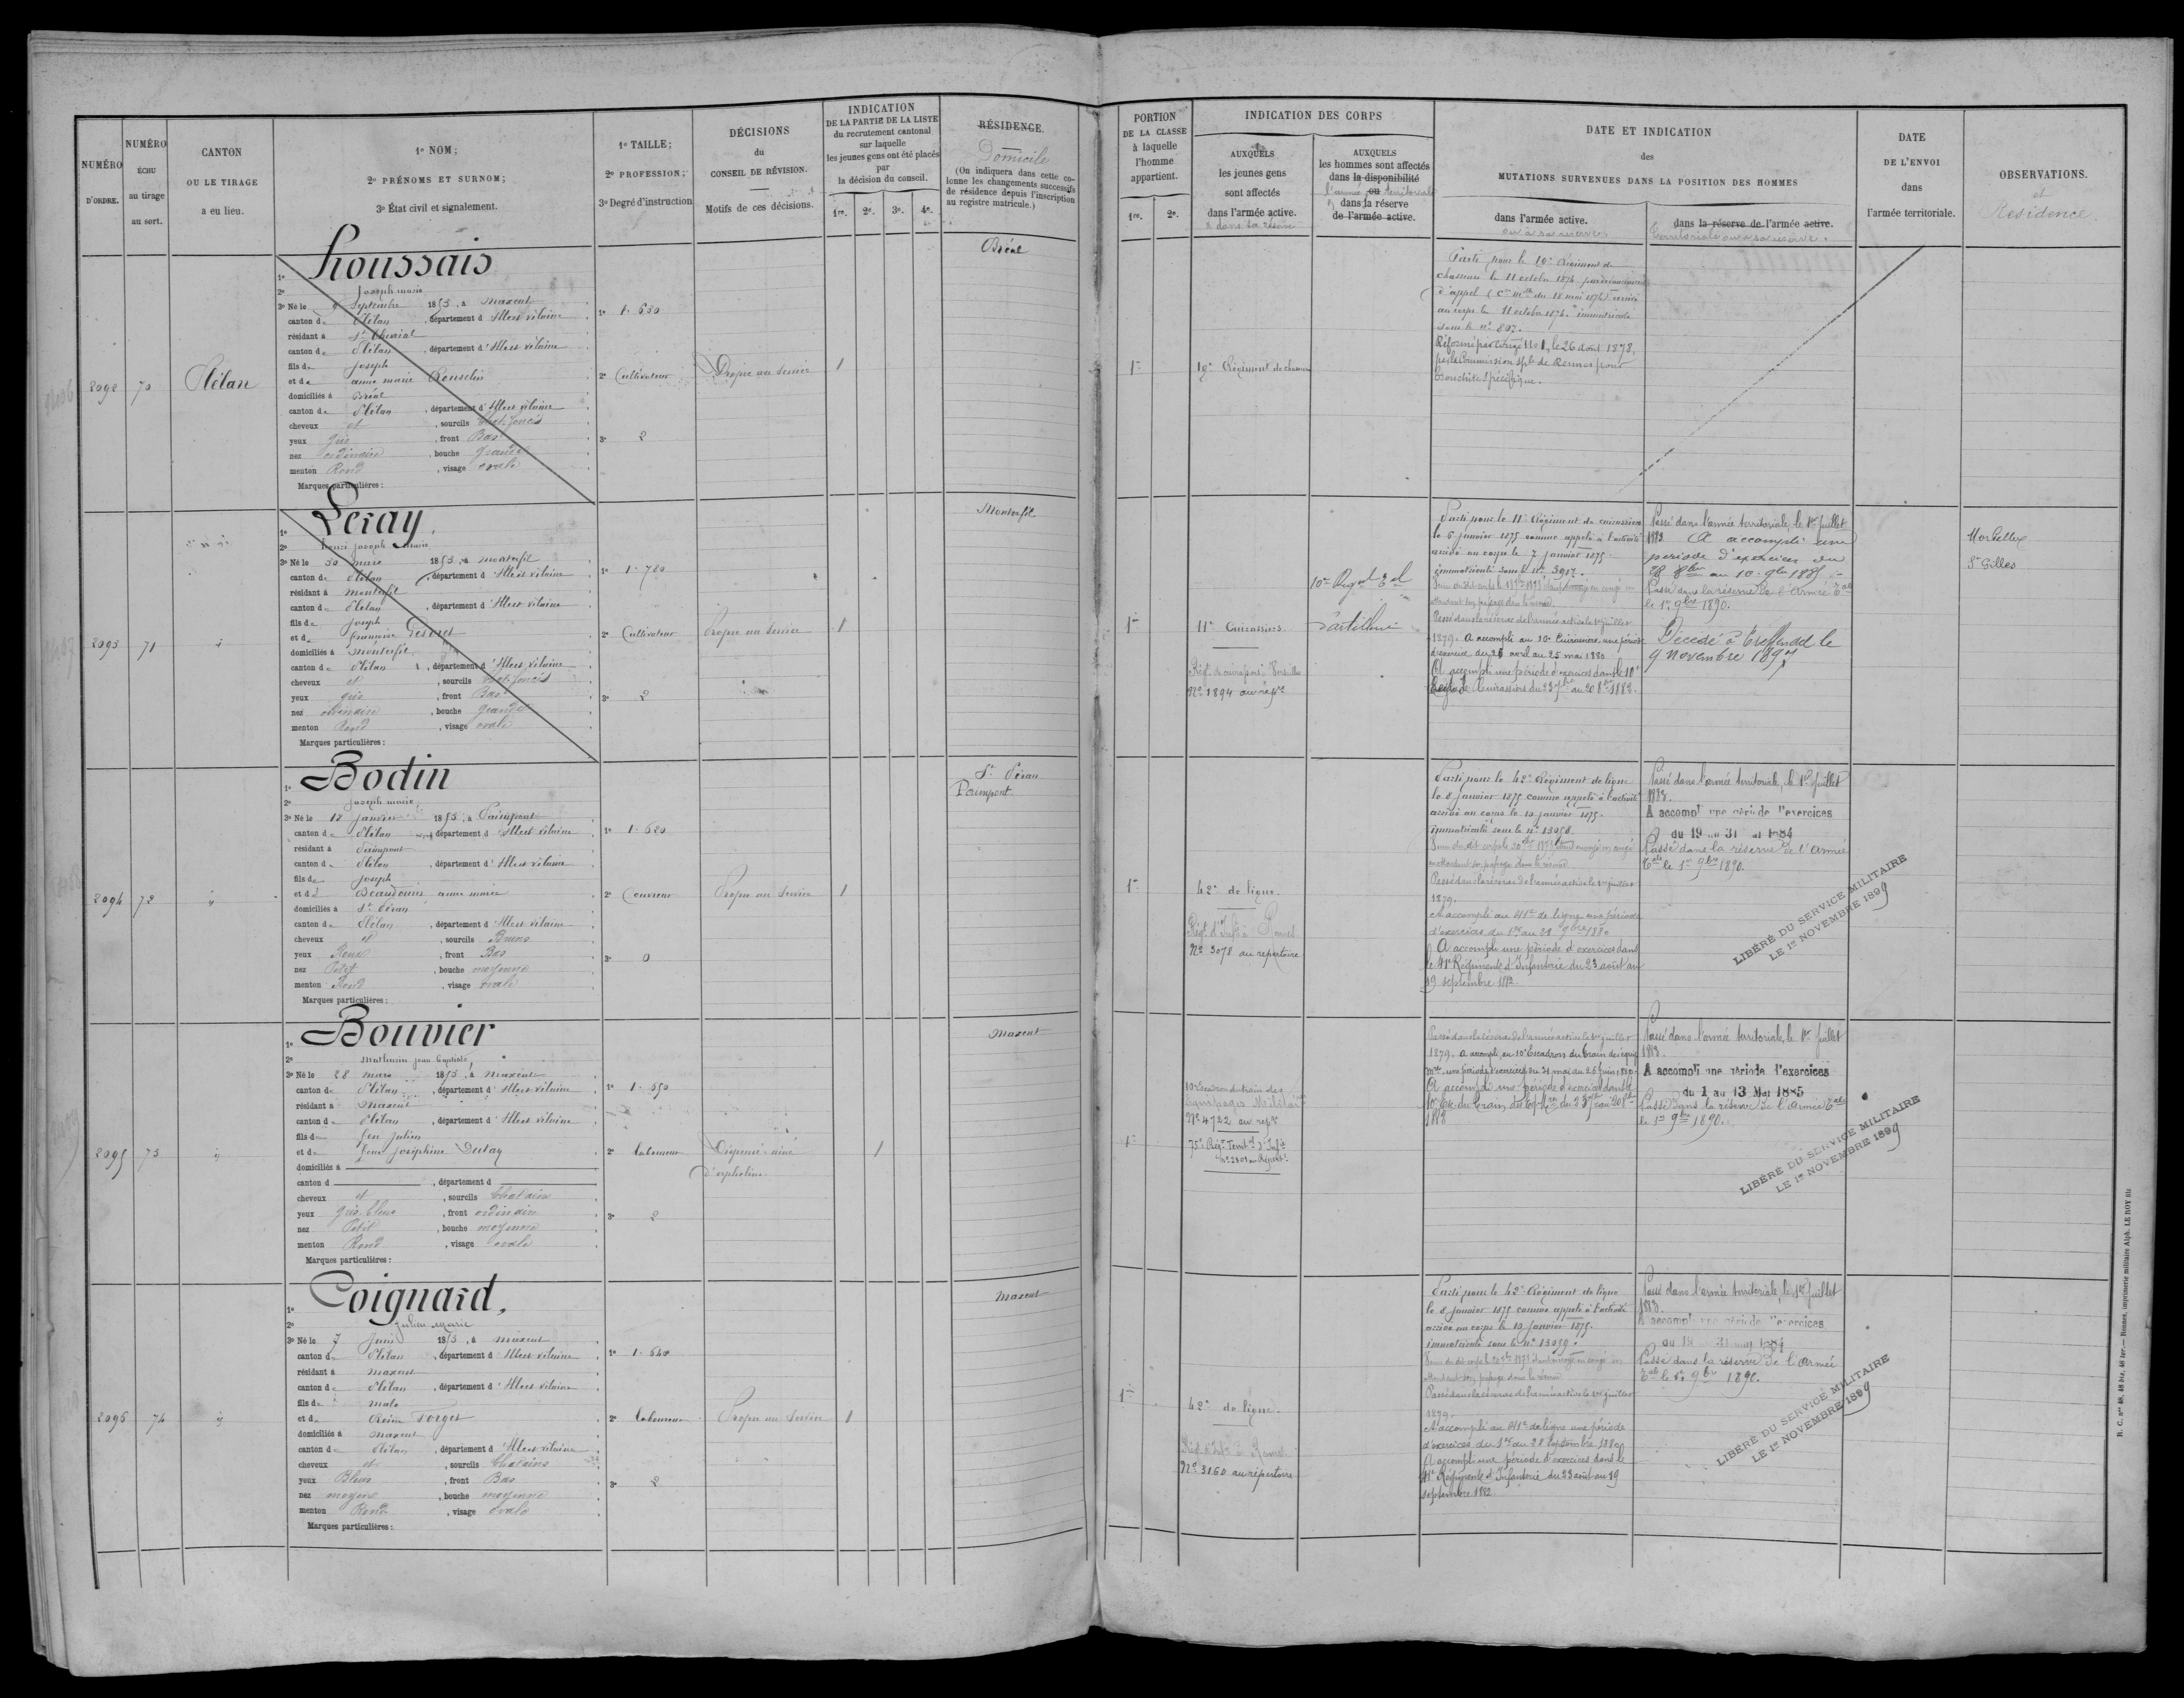 NUMÉRO
D'ORDRE.
NUMÉRO
ÉCHU
au tirage
au sort.
CANTON
OU LE TIRAGE
a eu lieu.
1º NOM;
2º PRÉNOMS ET SURNOM;
3º État civil et signalement.
1º TAILLE;
2º PROFESSION;
3º Degré d'instruction
DÉCISIONS
du
CONSEIL DE RÉVISION.
Motifs de ces décisions.
INDICATION
DE LA PARTIE DE LA LISTE
du recrutement cantonal
sur laquelle
les jeunes gens ont été placés
par
la décision du conseil.
1re. 2e. 3e. 4e.
RÉSIDENCE.
Domicile
(On indiquera dans cette co-
lonne les changements successifs
de résidence depuis l'inscription
au registre matricule.)
PORTION
DE LA CLASSE
à laquelle
l'homme
appartient.
1re. 2e.
INDICATION DES CORPS
AUXQUELS
les jeunes gens
sont affectés
dans l'armée active.
& dans sa réserve
AUXQUELS
les hommes sont affectés
dans la disponibilité
ou
l'armée territoriale
dans la réserve
de l'armée active.
DATE ET INDICATION
des
MUTATIONS SURVENUES DANS LA POSITION DES HOMMES
dans l'armée active.
ou à sa réserve.
dans la réserve de l'armée active.
Territoriale ou à sa réserve.
DATE
DE L'ENVOI
dans
l'armée territoriale.
OBSERVATIONS.
et
Résidence
2092 70 Plélan
1º Houssais
2º Joseph marie
3º Né le Septembre 1853, à Maxent
canton de Plélan, département d'Ille et vilaine
résidant à St Thurial
canton de Plélan, département d'Ille et vilaine
fils de Joseph
et de anne marie
domiciliés à Bréal
canton de Plélan, département d'Ille et vilaine
cheveux et, sourcils Chat. foncés
yeux gris, front Bas
nez ordinaire, bouche grande
menton Rond, visage ovale
Marques particulières:
1º 1.650
2º Cultivateur
3º 2
Propre au service
1
Bréal
1re
19e Régiment de chasseurs
Parti pour le 19e Régiment de
chasseurs le 11 octobre 1874
d'appel (Cre mlle du 18 mai 1874) arrivé
au corps le 11 octobre 1874. immatriculé
sous le nº 807.
Réformé par congé No 1, le 26 aout 1878,
par la Commission Sple de Rennes pour
bronchite spécifique.
2093 71
1º Leray,
2º henri joseph marie
3º Né le 30 mars 1853, à monterfil
canton de Plélan, département d'Ille et vilaine
résidant à monterfil
canton de Plélan, département d'Ille et vilaine
fils de Joseph
et de françoise
domiciliés à monterfil
canton de Plélan, département d'Ille et vilaine
cheveux et, sourcils Chat. foncés
yeux gris, front Bas
nez ordinaire, bouche grande
menton Rond, visage ovale
Marques particulières:
1º 1.780
2º Cultivateur
3º 2
Propre au service
1
Monterfil
1re
11e Cuirassiers.
Nº 1894 au repre
10e Régt
d'artillerie
Parti pour le 11e Régiment de cuirassiers
le 6 janvier 1875 comme appelé à l'activité
arrivé au corps le 7 janvier 1875.
immatriculé sous le nº 3917.
Passé dans la réserve de l'armée active le 1er juillet
1879. A accompli au 10e Cuirassiers une période
d'exercices du 28 avril au 25 mai 1880
A accompli une période d'exercices dans le 10e
Régt de Cuirassiers du 23 7bre au 20 8bre 1882.
Passé dans l'armée territoriale, le 1er juillet
1883. A accompli une
période d'exercices du
28 8bre au 10 9bre 1885
Passé dans la réserve de l'Armée Tale
le 1er 9bre 1890.
Décédé à Treffendel le
9 novembre 1897
Mordelles
St Gilles
2094 72
1º Bodin
2º joseph marie
3º Né le 12 janvier 1853, à Paimpont
canton de Plélan, département d'Ille et vilaine
résidant à Paimpont
canton de Plélan, département d'Ille et vilaine
fils de Joseph
et de Beaudouin anne marie
domiciliés à St Péran
canton de Plélan, département d'Ille et vilaine
cheveux et, sourcils Bruns
yeux Roux, front Bas
nez Petit, bouche moyenne
menton Rond, visage ovale
Marques particulières:
1º 1.620
2º Couvreur
3º 0
Propre au service
1
St Péran
Paimpont
1re
42e de ligne.
Régt d'Infie à Rennes
Nº 3078 au répertoire
Parti pour le 42e Régiment de ligne
le 8 janvier 1875 comme appelé à l'activité
arrivé au corps le 10 janvier 1875.
immatriculé sous le nº 13058.
Passé dans la réserve de l'armée active le 1er juillet
1879.
A accompli au 41e de ligne une période
d'exercices du 1er au 28 7bre 1880
A accompli une période d'exercices dans
le 41e Régiment d'Infanterie du 23 août au
19 septembre 1882.
Passé dans l'armée territoriale, le 1er juillet
1883.
A accompli une période d'exercices
du 19 au 31 mai 1884
Passé dans la réserve de l'Armée
Tale le 1er 9bre 1890.
LIBÉRÉ DU SERVICE MILITAIRE
LE 1er NOVEMBRE 1899
2095 73
1º Bouvier
2º Mathurin jean Baptiste
3º Né le 28 mars 1853, à Maxent
canton de Plélan, département d'Ille et vilaine
résidant à Maxent
canton de Plélan, département d'Ille et vilaine
fils de feu Julien
et de feue Joséphine Dutay
domiciliés à
canton d , département d
cheveux et, sourcils Chatains
yeux gris bleus, front ordinaire
nez Petit, bouche moyenne
menton Rond, visage ovale
Marques particulières:
1º 1.650
2º laboureur
3º 2
Dispensé ainé
d'orphelins
1
Maxent
1re
10e Escadron du train des
équipages Militaires
Nº 4722 au repre
75e Régt Territl d'Infie
Passé dans la réserve de l'armée active le 1er juillet
1879. A accompli, au 10e Escadron du train des équip.
mres, une période d'exercices du 31 mai au 26 juin 1880.
A accompli une période d'exercices dans le
10e Esc. du train des Eq. Mres du 23 7bre au 20 8bre
1882
Passé dans l'armée territoriale, le 1er juillet
1883.
A accompli une période d'exercices
du 1 au 13 Mai 1885
Passé dans la réserve de l'Armée Tale
le 1er 9bre 1890.
LIBÉRÉ DU SERVICE MILITAIRE
LE 1er NOVEMBRE 1899
2096 74
1º Coignard,
2º Julien Marie
3º Né le 7 juin 1853, à maxent
canton de Plélan, département d'Ille et vilaine
résidant à maxent
canton de Plélan, département d'Ille et vilaine
fils de malo
et de Reine Forget
domiciliés à maxent
canton de Plélan, département d'Ille et vilaine
cheveux et, sourcils Chatains
yeux Bleus, front Bas
nez moyen, bouche moyenne
menton Rond, visage ovale
Marques particulières:
1º 1.640
2º laboureur
3º 2
Propre au service
1
Maxent
1re
42e de ligne.
Régt d'Infie à Rennes
Nº 3160 au répertoire
Parti pour le 42e Régiment de ligne
le 8 janvier 1875 comme appelé à l'activité
arrivé au corps le 10 janvier 1875.
immatriculé sous le nº 13059.
Passé dans la réserve de l'armée active le 1er juillet
1879.
A accompli au 41e de ligne une période
d'exercices du 1er au 28 Septembre 1880
A accompli une période d'exercices dans le
41e Régiment d'Infanterie du 23 août au 19
septembre 1882.
Passé dans l'armée territoriale, le 1er juillet
1883.
A accompli une période d'exercices
du 19 31 mai 1884
Passé dans la réserve de l'Armée
Tale le 1er 9bre 1890.
LIBÉRÉ DU SERVICE MILITAIRE
LE 1er NOVEMBRE 1899
R. C. nos 48, 48 bis, 48 ter. — Rennes, imprimerie militaire Alph. LE ROY fils